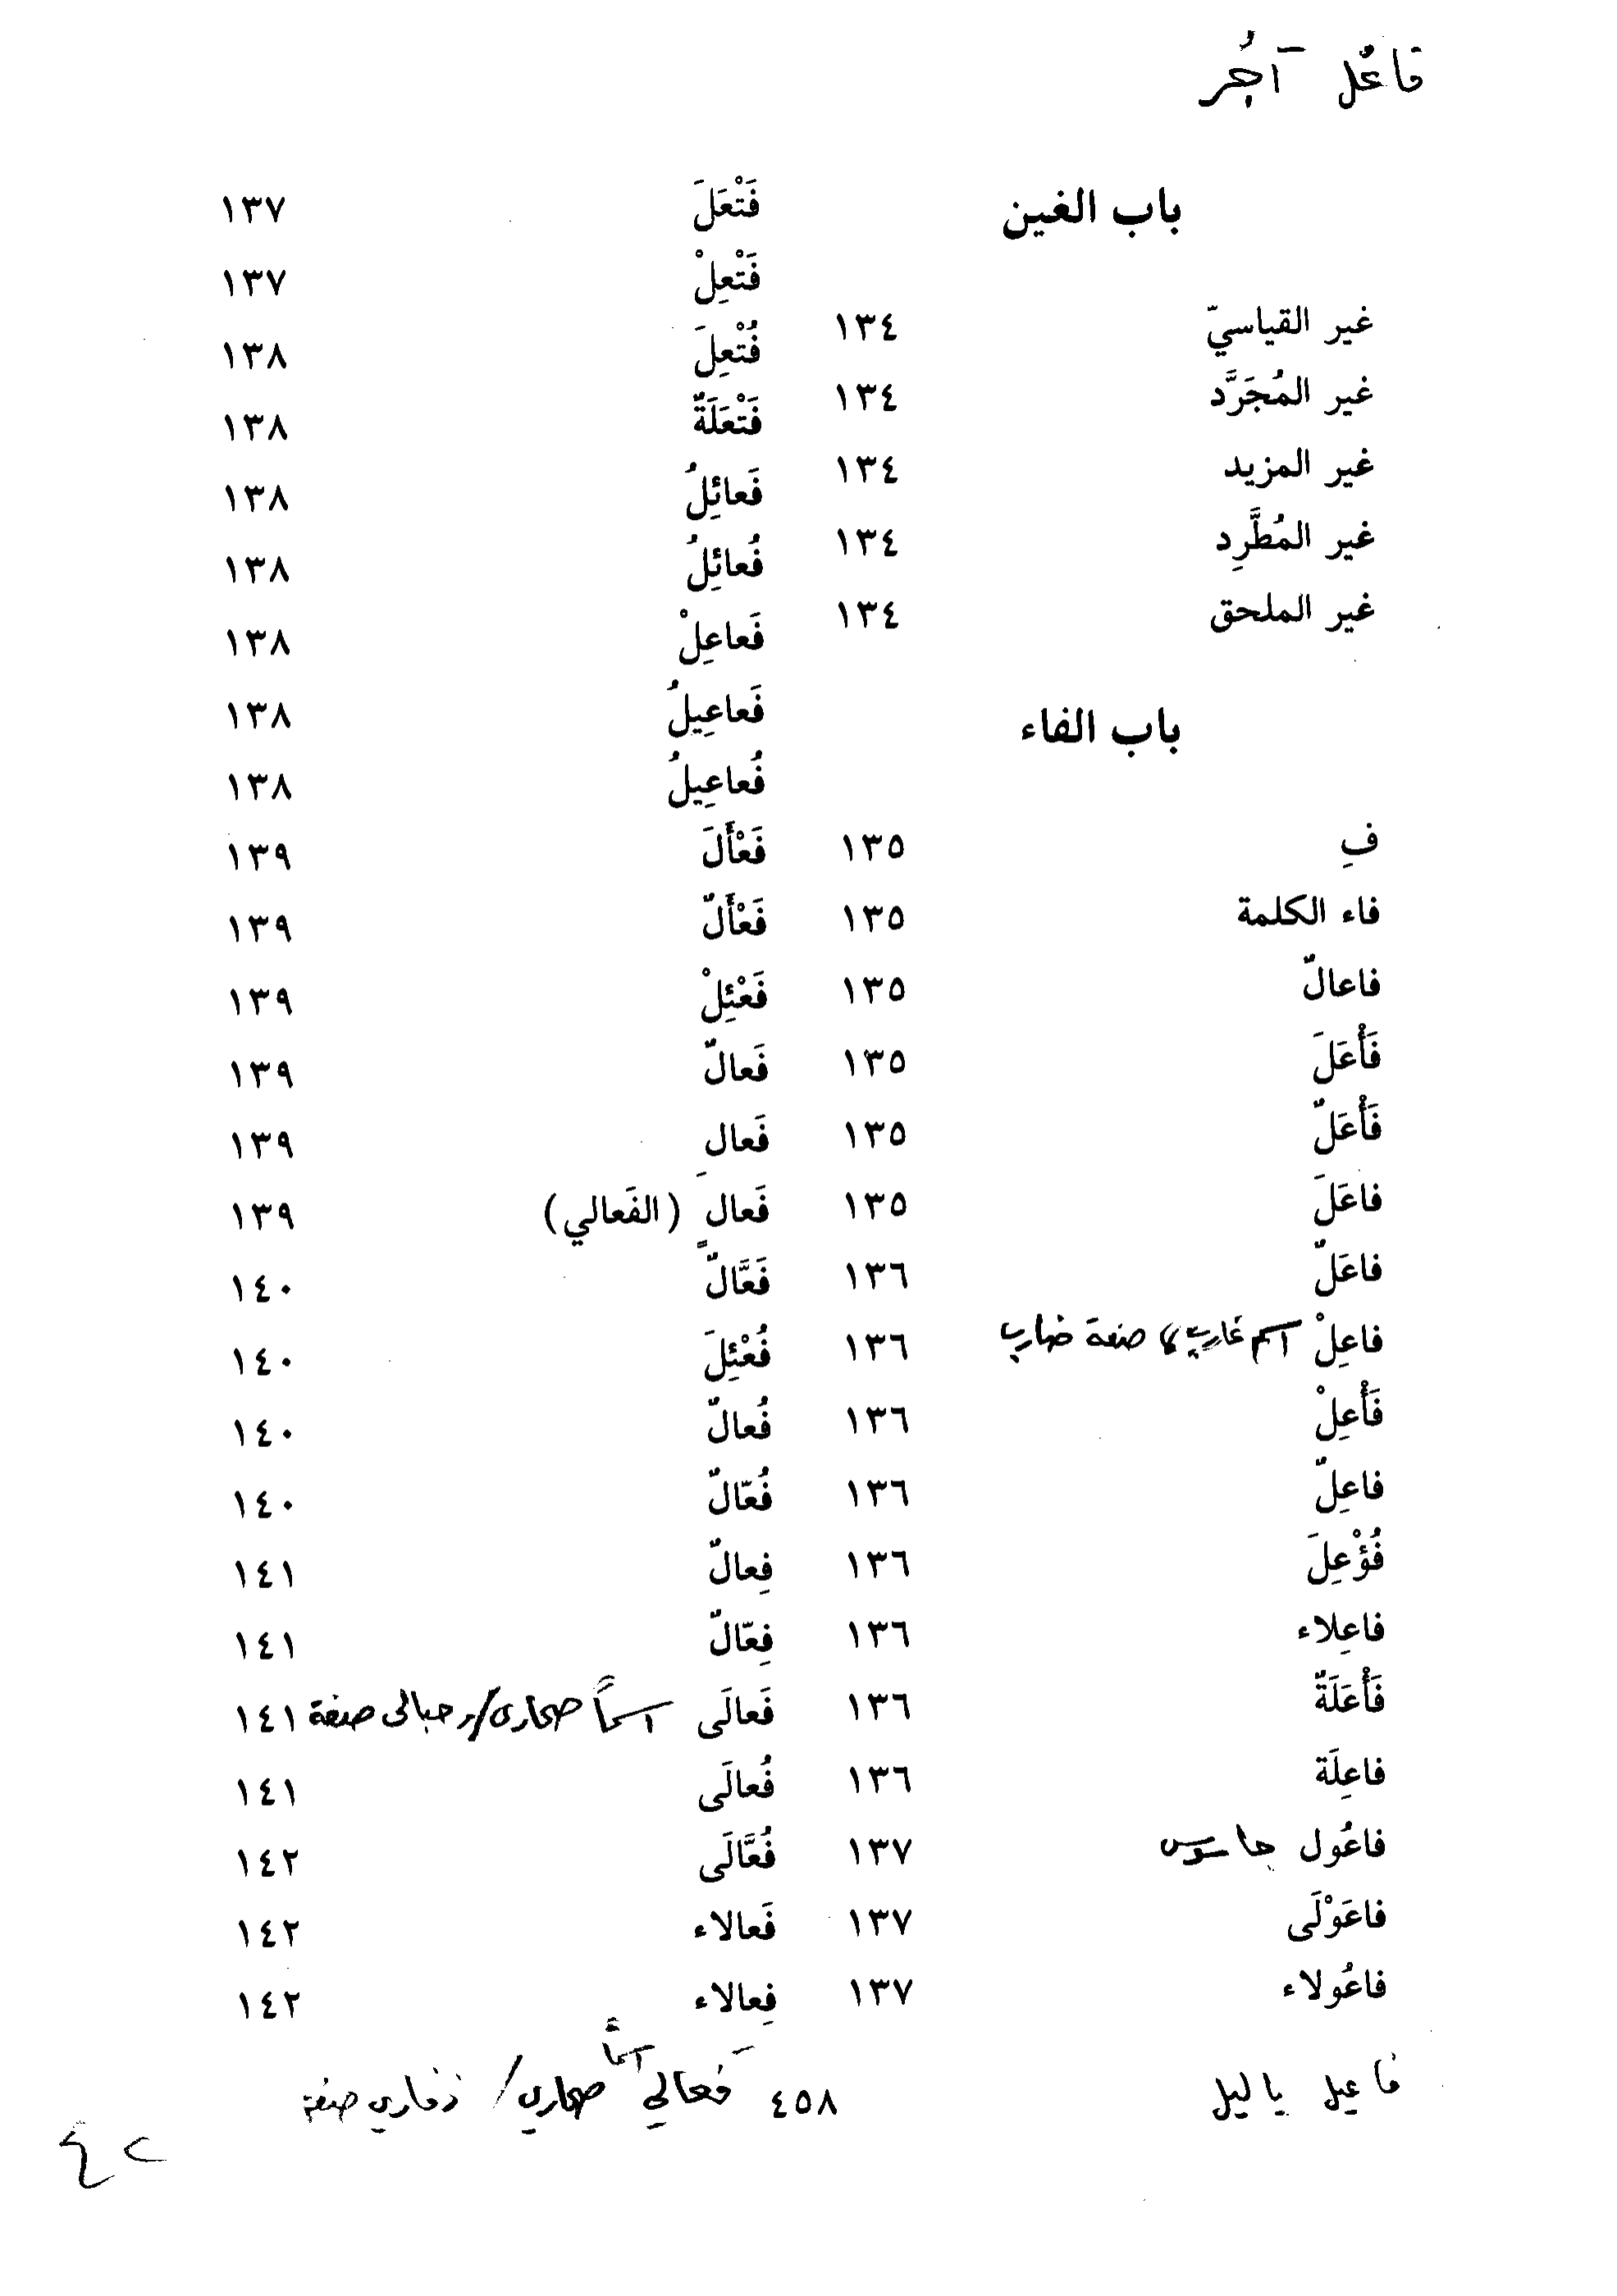 فاعُل آجُر
باب الغين
غير القياسيّ ١٣٤
غير المُجَرَّد ١٣٤
غير المزيد ١٣٤
غير المُطَّرِد ١٣٤
غير الملحق ١٣٤
باب الفاء
فِ ١٣٥
فاء الكلمة ١٣٥
فاعالٌ ١٣٥
فَأْعَلَ ١٣٥
فَأْعَلٌ ١٣٥
فاعَلَ ١٣٥
فاعَلٌ ١٣٦
فاعِلْ اسم غارب / صفة ضارب ١٣٦
فَأْعِلْ ١٣٦
فاعِلٌ ١٣٦
فُؤْعِلَ ١٣٦
فاعِلاء ١٣٦
فَأْعَلَةٌ ١٣٦
فاعِلَة ١٣٦
فاعُول جاسوس ١٣٧
فاعَوْلَى ١٣٧
فاعُولاء ١٣٧
فاعيل ياليل
فَتْعَلَ ١٣٧
فَتْعِلْ ١٣٧
فُتْعِلَ ١٣٨
فَتْعَلَةٌ ١٣٨
فَعائِلُ ١٣٨
فُعائِلُ ١٣٨
فَعاعِلْ ١٣٨
فَعاعِيلُ ١٣٨
فُعاعِيلُ ١٣٨
فَعْأَلَ ١٣٩
فَعْأَلٌ ١٣٩
فَعْئِلْ ١٣٩
فَعالٌ ١٣٩
فَعالِ ١٣٩
فَعالٍ (الفَعالي) ١٣٩
فَعَّالٌ ١٤٠
فُعْئِلَ ١٤٠
فُعالٌ ١٤٠
فُعّالٌ ١٤٠
فِعالٌ ١٤١
فِعّالٌ ١٤١
فَعالَى اسماً صحارى / حبالى صفة ١٤١
فُعالَى ١٤١
فُعَّالَى ١٤٢
فَعالاء ١٤٢
فِعالاء ١٤٢
فَعالِي اسماً صحاري / ذفاري صفة
٤٥٨
٤٢